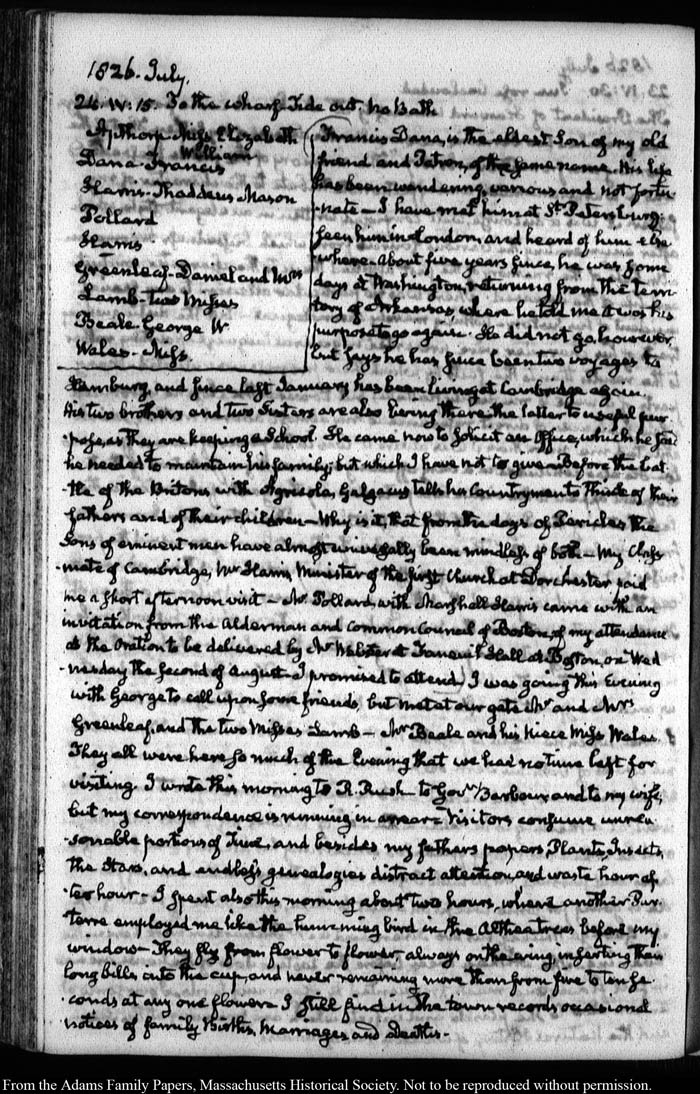 1826. July.
26. IV: 15. To the wharf. Tide out. No Bath
Apthorp Miss Elizabeth
William
Dana Francis
Harris. Thaddeus Mason
Pollard
Harris
Greenleaf. Daniel and Mrs
Lamb. two Misses
Beale. George W
Wales. Miss.
Francis Dana, is the eldest Son of my old
friend and Patron, of the same name. His life
has been wandering, various and not fortu-
-nate — I have met him at St. Petersburg.
seen him in London, and heard of him else
where. About five years since, he was some
days at Washington, returning from the Terri-
tory of Arkansas, where he told me it was his
purpose to go again. He did not go, however,
but says he has since been two voyages to
Hamburg, and since last January has been living at Cambridge again.
His two brothers and two Sisters are also living there the latter to useful pur
-pose, as they are keeping a School. He came now to solicit an Office, which he said
he needed to maintain his family; but which I have not to give — Before the bat-
-tle of the Britons with Agricola, Galgacus tells his Countrymen to think of their
fathers and of their children — Why is it, that from the days of Pericles the
Sons of eminent men have almost universally been mindless of both — My Class
-mate of Cambridge, Mr Harris, Minister of the first Church at Dorchester paid
me a short afternoon visit — Mr Pollard, with Marshall Harris came with an
invitation from the Alderman and Common Council of Boston, of my attendance
at the Oration to be delivered by Mr Webster at Faneuil Hall at Boston, on Wed
-nesday the second of August. I promised to attend. I was going this Evening
with George to call upon some friends, but met at our gate Mr and Mrs
Greenleaf, and the two Misses Lamb — Mr Beale and his Niece Miss Wales.
They all were here so much of the Evening that we had no time left for
visiting. I wrote this morning to R. Rush to Govr Barbour and to my wife,
but my correspondence is running in arrear. Visitors consume unrea
-sonable portions of Time, and besides my father's papers, Plants, Insects,
the Stars, and endless genealogies distract attention, and waste hour af
-ter hour — I spent also this morning about two hours, where another Pur
employed me like the humming bird in the Althea trees before my
window — They fly from flower to flower, always on the wing, inserting their
long bills into the cup, and never remaining more than from five to ten se-
-conds at any one flower. I still find in the town records occasional
notices of family Births, Marriages, and Deaths.
From the Adams Family Papers, Massachusetts Historical Society. Not to be reproduced without permission.